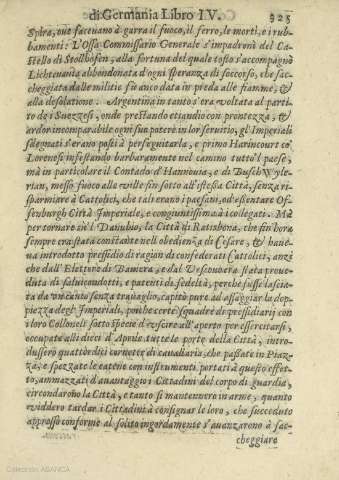 di Germania Libro IV. 925
Spira, oue faceuano à gurra il fuoco, il ferro, le morti, e i rub-
bamenti: L'Ossa Commissario Generale s'impadronì del Ca-
stello di Stollhofen, alla fortuna del quale tosto s'accompagnò
Lichtenau abbandonata d'ogni speranza di soccorso, che sac-
cheggiata dalle militie fù anco data in preda alle fiamme, &
alla desolatione. Argentina in tanto s'era voltata al parti-
to de i Suezzesi, onde prestando etiandio con prontezza, &
ardor incomparabile ogni suo potere in lor seruitio, gl'Imperiali
sdegnati s'erano posti à perseguitarla, e primo Harincourt co'
Lorenesi infestando barbaramente nel camino tutto'l paese,
mà in particolare il Contado d'Hannouia, e di Buschvvyle-
rian, messo fuoco alle ville sin sotto all'istessa Città, senza ri-
sparmiare à Cattolici, che tali erano i paesani, od esentare Of-
fenburgh Città Imperiale, e congiuntissima à i collegati. Mà
per tornare in'l Danubio, la Città di Ratisbona, che fin hora
sempre era stata constante nell'obedienza di Cesare, & haue-
ua introdotto presidio di ragion di confederati Cattolici, anzi
che dall'Elettore di Bauiera, e dal Vescouo era stata proue-
duta di saluicondotti, e patenti di fedeltà, perche fusse lascia-
ta da vn canto senza trauaglio, capitò pure ad assaggiar la dop-
piezza degl'Imperiali, poiche certe squadre de presidiarij con
i loro Collonelli sotto specie d'vscire all'aperto per essercitarsi,
occupate alli dieci d'Aprile tutte le porte della Città, intro-
dussero quattordici cornette di cauallaria, che passate in Piaz-
za, e spezzate le catene con instrumenti portati à questo effet-
to, ammazzati d'auantaggio i Cittadini del corpo di guardia,
circondarono la Città, e tanto si mantennero in arme, quanto
viddero tardar i Cittadini à consignar le loro, che succeduto
appresso conforme al solito ingordamente s'auanzarono à sac-
cheggiare
Colección ABANCA